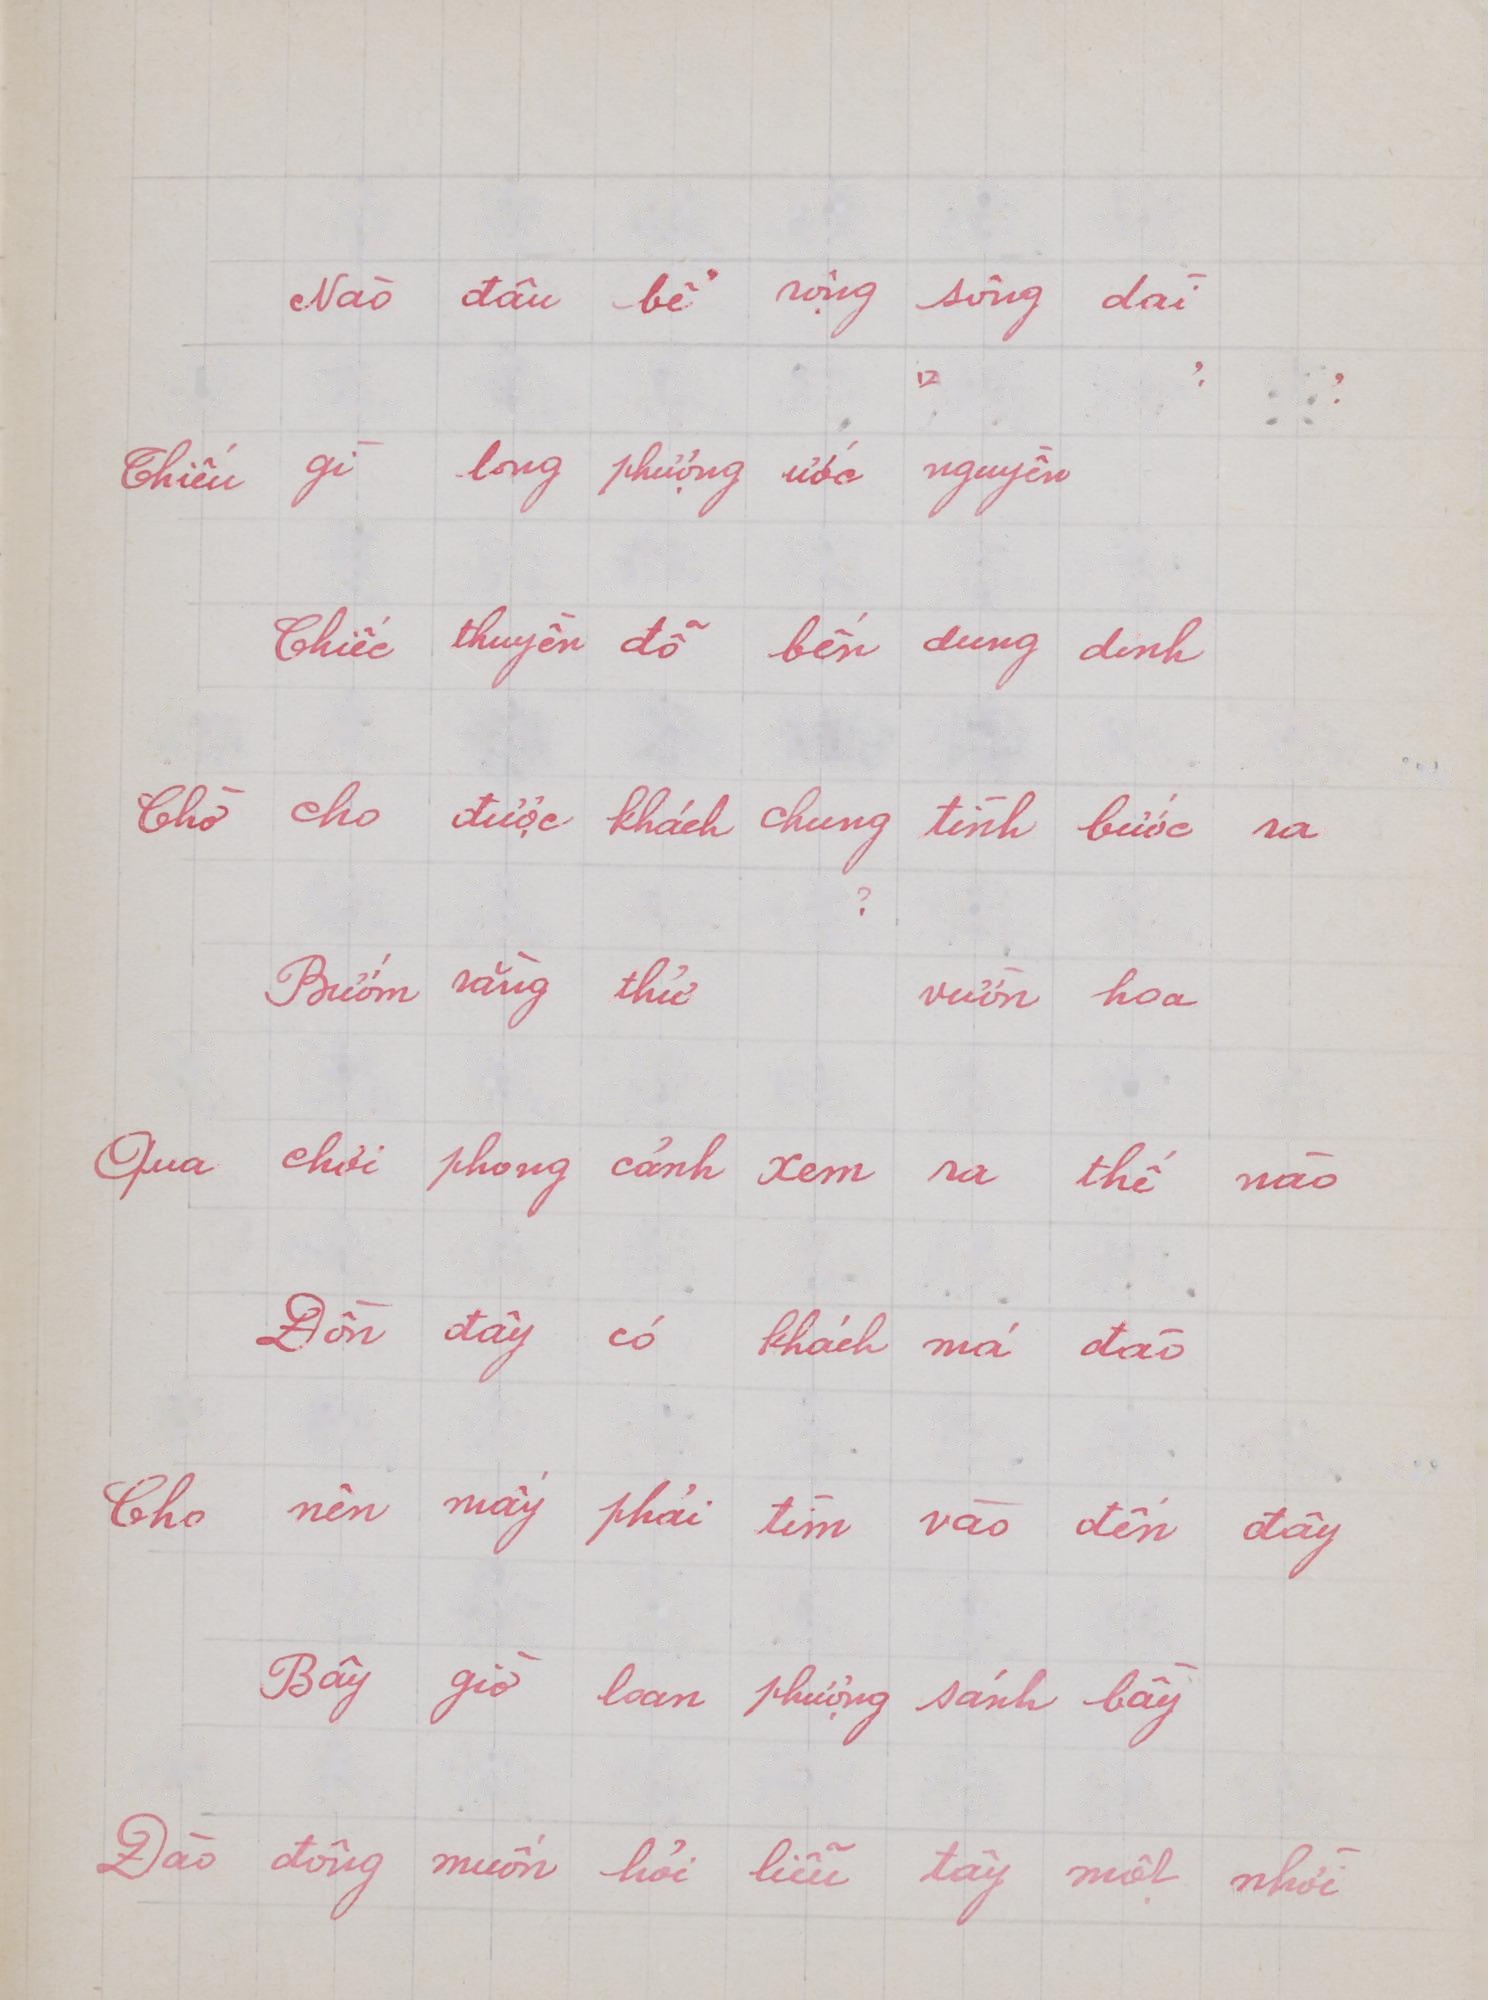 Nào đâu bể rộng sông dài
12 ? ?
Thiếu gì long phượng ước nguyền
Chiếc thuyền đỗ bến dung dinh
Chờ cho được khách chung tình bước ra
?
Bướm rằng thử vườn hoa
Qua chơi phong cảnh xem ra thế nào
Đồn đây có khách má đào
Cho nên mấy phải tìm vào đến đây
Bây giờ loan phượng sánh bầy
Đào đông muốn hỏi liễu tây một nhời